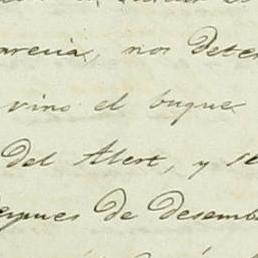 arecia, nos dete
vino el buque
del Alert, y se
espues de desemb